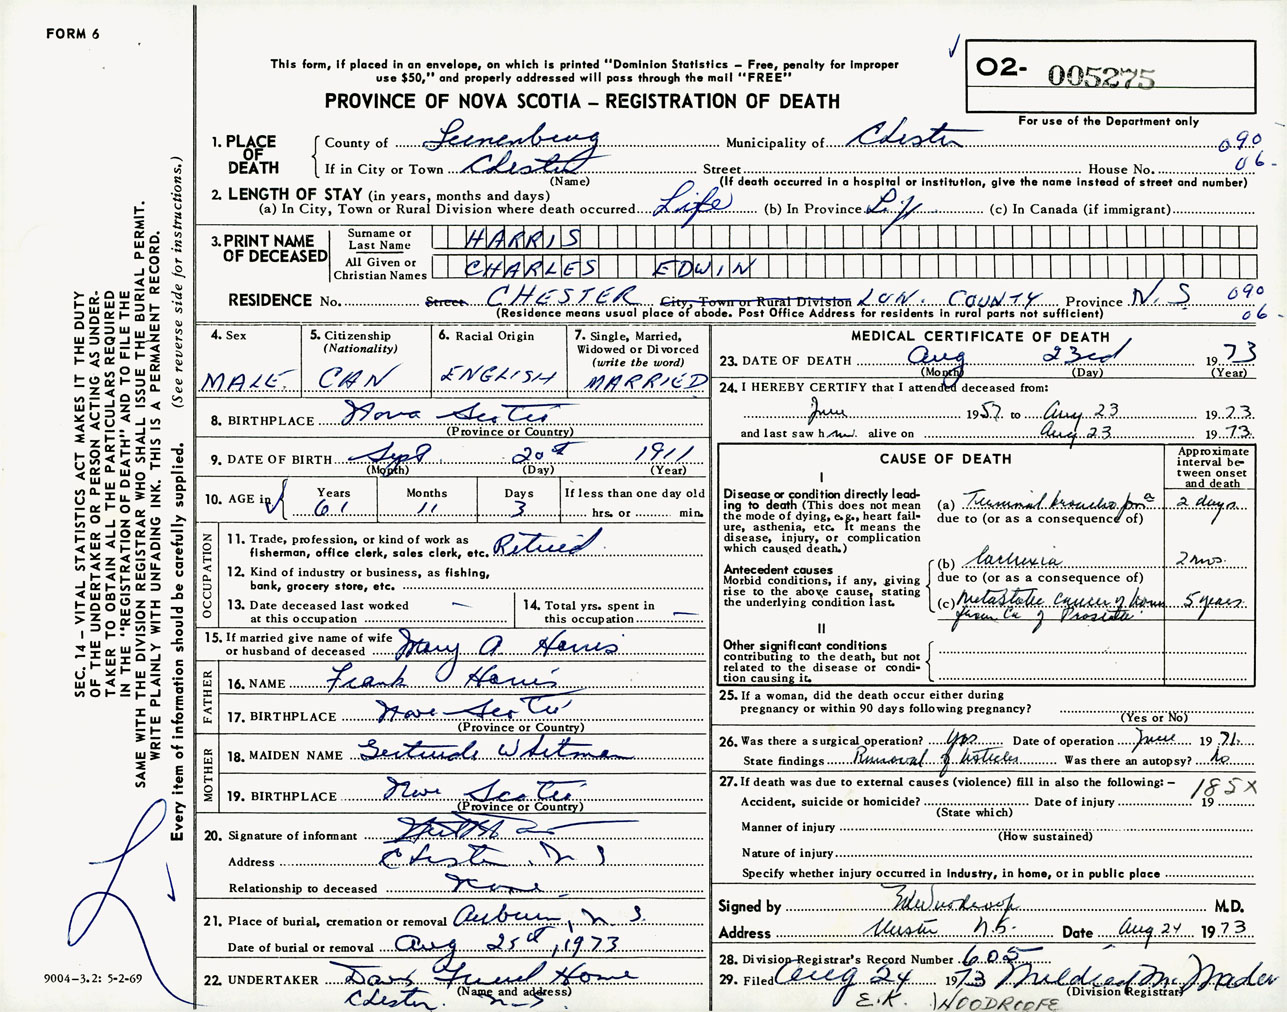 FORM 6
This form, if placed in an envelope, on which is printed "Dominion Statistics – Free, penalty for improper
use $50," and properly addressed will pass through the mail "FREE"
O2- 005275
For use of the Department only
PROVINCE OF NOVA SCOTIA – REGISTRATION OF DEATH
1. PLACE OF DEATH
County of Lunenburg Municipality of Chester 090
If in City or Town Chester Street House No. 06-
(Name) (If death occurred in a hospital or institution, give the name instead of street and number)
2. LENGTH OF STAY (in years, months and days)
(a) In City, Town or Rural Division where death occurred Life (b) In Province Life (c) In Canada (if immigrant)
3. PRINT NAME OF DECEASED
Surname or Last Name HARRIS
All Given or Christian Names CHARLES EDWIN
RESIDENCE No. Street CHESTER City, Town or Rural Division LUN. COUNTY Province N.S 090
(Residence means usual place of abode. Post Office Address for residents in rural parts not sufficient) 06-
4. Sex MALE
5. Citizenship (Nationality) CAN
6. Racial Origin ENGLISH
7. Single, Married, Widowed or Divorced (write the word) MARRIED
8. BIRTHPLACE Nova Scotia
(Province or Country)
9. DATE OF BIRTH Sept 20th 1911
(Month) (Day) (Year)
10. AGE in Years 61 Months 11 Days 3 If less than one day old hrs. or min.
OCCUPATION
11. Trade, profession, or kind of work as fisherman, office clerk, sales clerk, etc. Retired
12. Kind of industry or business, as fishing, bank, grocery store, etc.
13. Date deceased last worked at this occupation —
14. Total yrs. spent in this occupation —
15. If married give name of wife or husband of deceased Mary A Harris
FATHER
16. NAME Frank Harris
17. BIRTHPLACE Nova Scotia
(Province or Country)
MOTHER
18. MAIDEN NAME Gertrude Whitman
19. BIRTHPLACE Nova Scotia
(Province or Country)
20. Signature of informant
Address Chester, N S
Relationship to deceased None
21. Place of burial, cremation or removal Auburn, N.S.
Date of burial or removal Aug 25th, 1973
22. UNDERTAKER Davis Funeral Home
(Name and address)
Chester. N-S
MEDICAL CERTIFICATE OF DEATH
23. DATE OF DEATH Aug 23rd 1973
(Month) (Day) (Year)
24. I HEREBY CERTIFY that I attended deceased from:
June 1957 to Aug 23 1973
and last saw him alive on Aug 23 1973
CAUSE OF DEATH
Approximate interval between onset and death
I
Disease or condition directly leading to death (This does not
mean the mode of dying, e.g., heart failure, asthenia, etc. It means the
disease, injury, or complication
which caused death.)
(a) Terminal broncho pna 2 days
due to (or as a consequence of)
Antecedent causes
Morbid conditions, if any, giving
rise to the above cause, stating
the underlying condition last.
(b) Cachexia 2 mos.
due to (or as a consequence of)
(c) Metastatic cancer of bone 5 years
from Ca of Prostate
II
Other significant conditions
contributing to the death, but not
related to the disease or condition causing it.
25. If a woman, did the death occur either during
pregnancy or within 90 days following pregnancy?
(Yes or No)
26. Was there a surgical operation? yes Date of operation June 1971.
State findings Removal of testicles Was there an autopsy? No
27. If death was due to external causes (violence) fill in also the following: – 185X
Accident, suicide or homicide? Date of injury 19
(State which)
Manner of injury
(How sustained)
Nature of injury
Specify whether injury occurred in industry, in home, or in public place
Signed by M.D.
Address Chester N.S. Date Aug 24 1973
28. Division Registrar's Record Number 605
29. Filed Aug 24 1973 Mildred M. Nader
(Division Registrar)
E.K. WOODROOFE
SEC. 14 – VITAL STATISTICS ACT MAKES IT THE DUTY
OF THE UNDERTAKER OR PERSON ACTING AS UNDER-
TAKER TO OBTAIN ALL THE PARTICULARS REQUIRED
IN THE "REGISTRATION OF DEATH" AND TO FILE THE
SAME WITH THE DIVISION REGISTRAR WHO SHALL ISSUE THE BURIAL PERMIT.
WRITE PLAINLY WITH UNFADING INK. THIS IS A PERMANENT RECORD.
Every item of information should be carefully supplied. (See reverse side for instructions.)
9004-3.2: 5-2-69